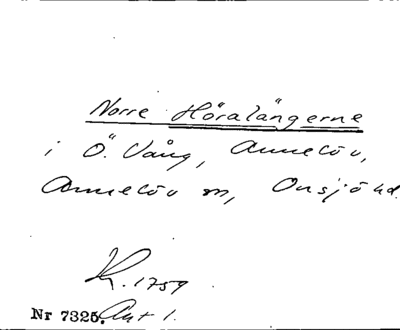 Norre Höralängerne
i Ö. Vång, Annelöv,
Annelöv sn, Onsjö hd.
K. 1759
Nr 7325. Akt 1.